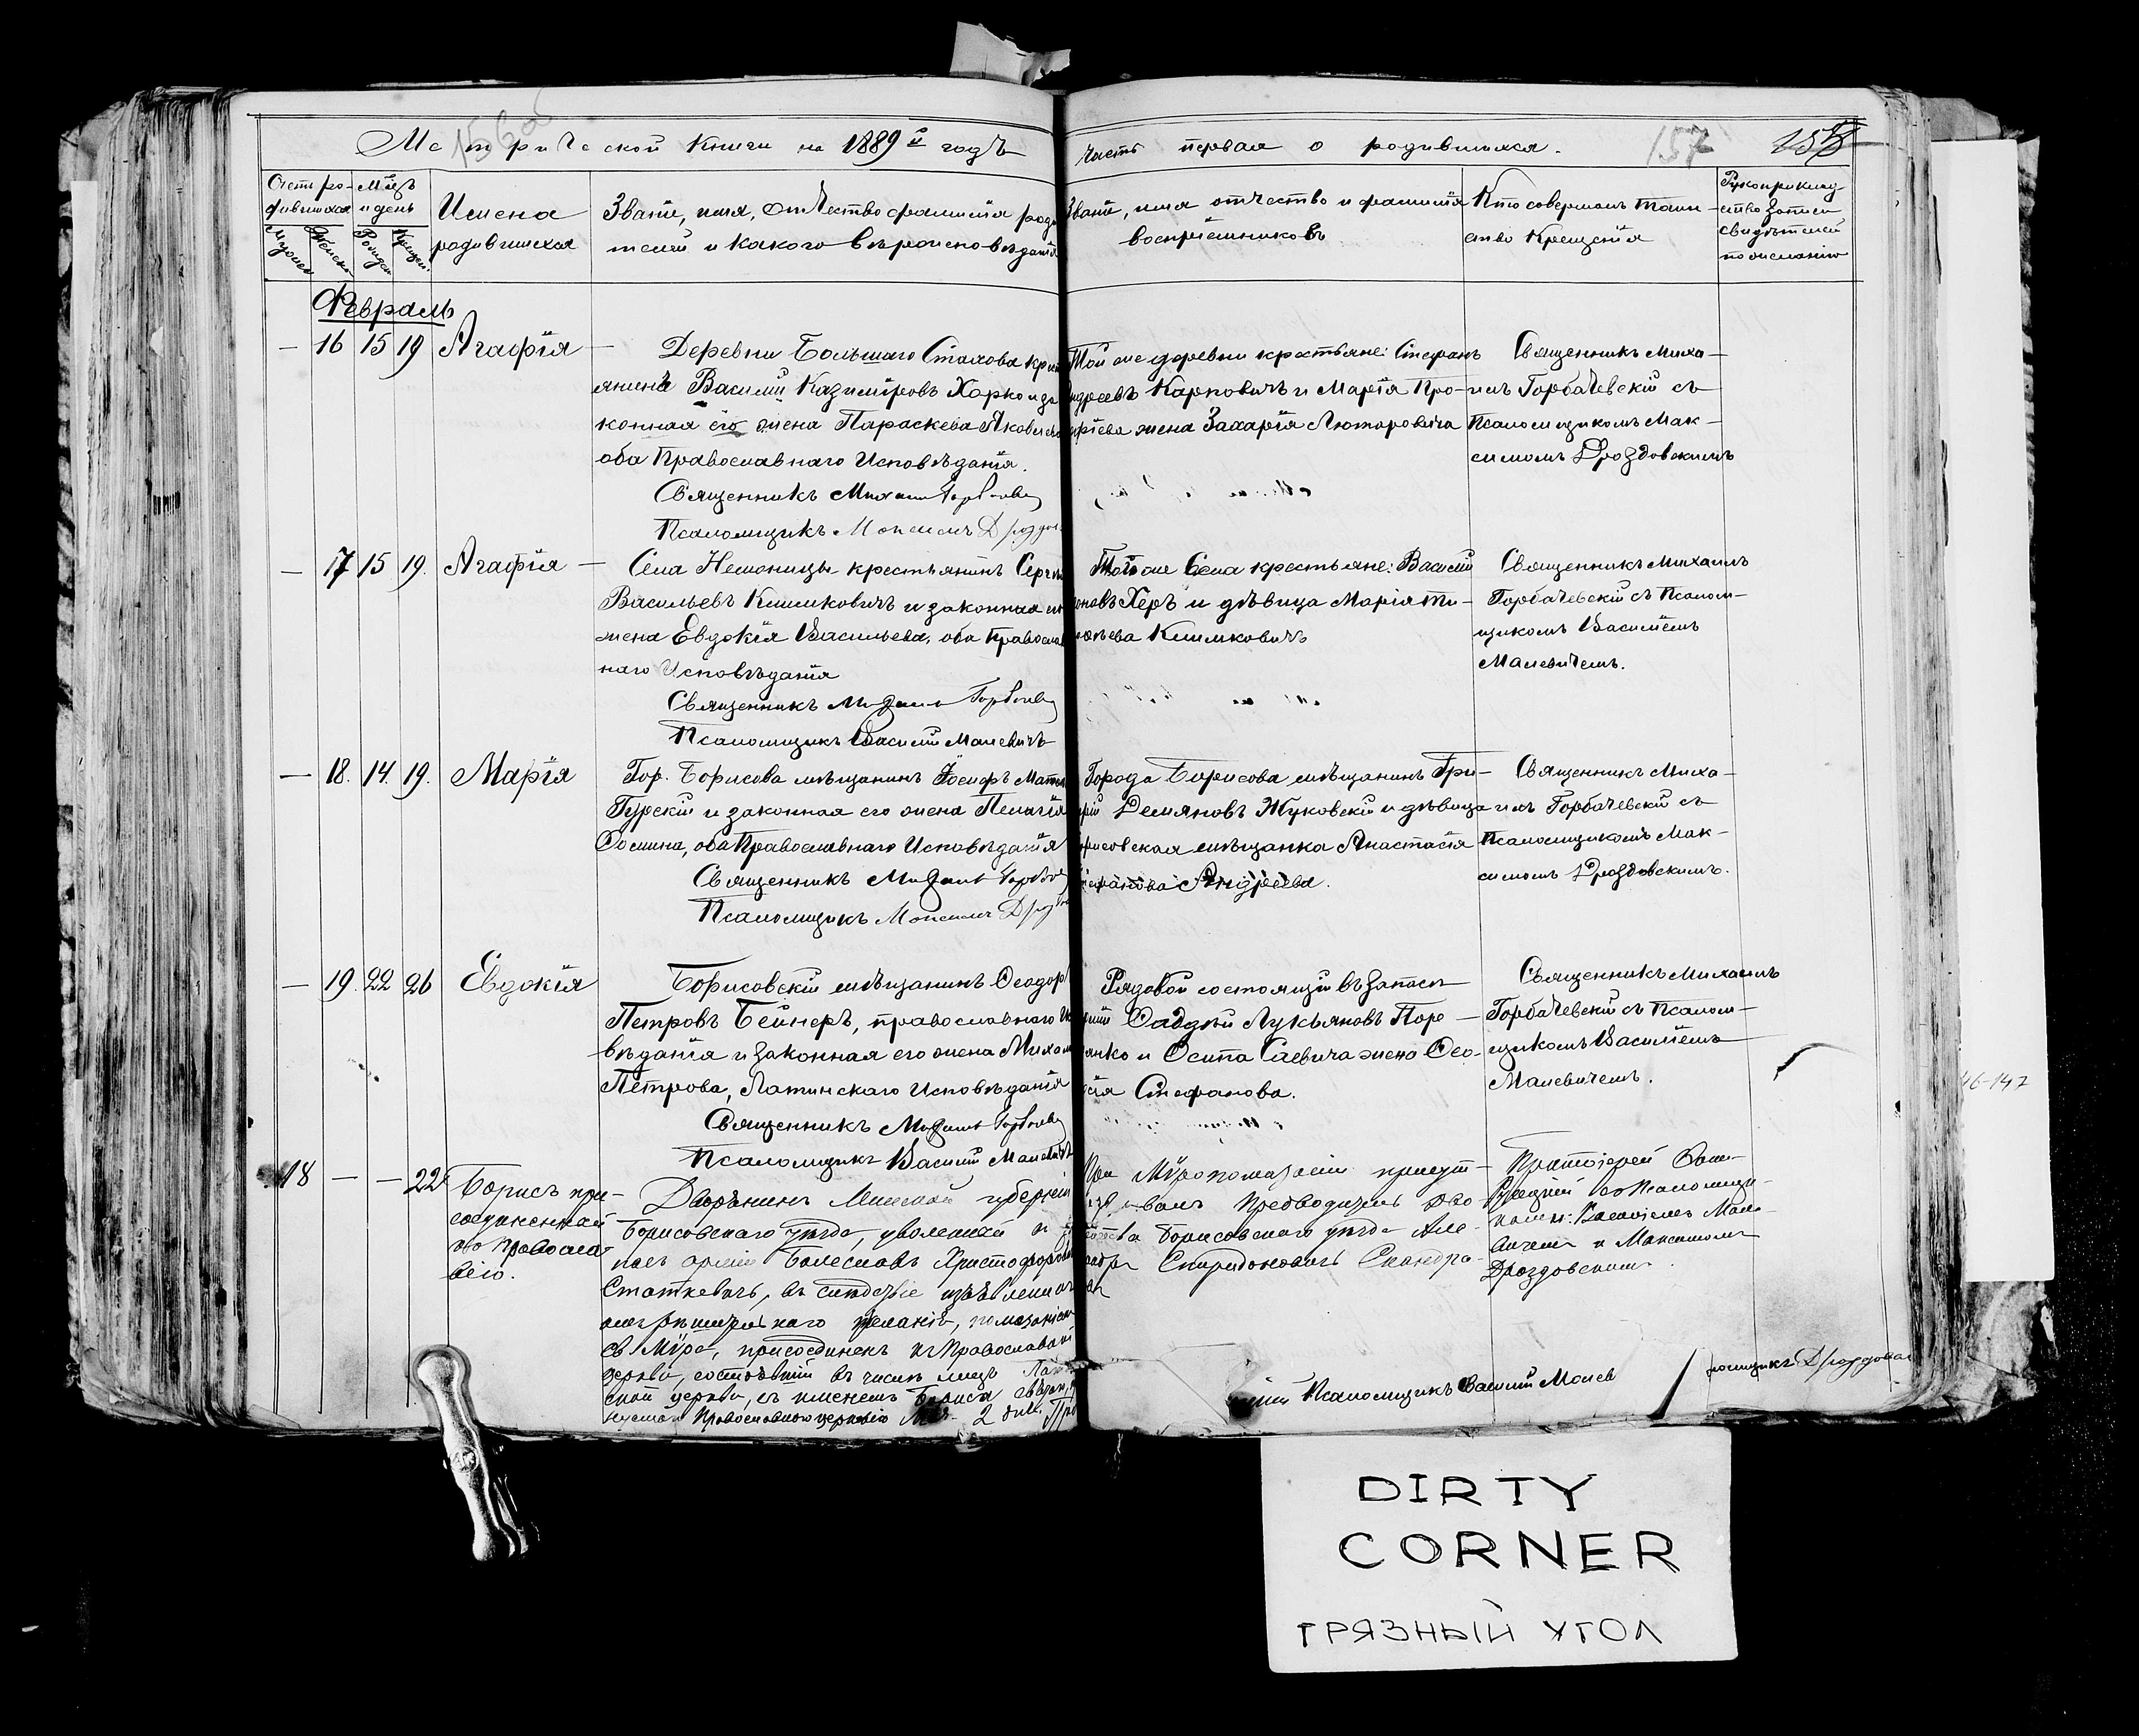 Метрической книги на 1889й годъ
часть первая о родившихся.
157
Мѣць и день
Имена родившихся
Званіе, имя, отчество фамилія роди
телей и какого вѣроисповѣданія
Званіе, имя отчество и фамилія
воспріемниковъ
Кто совершалъ таин
ство Крещенія
Рукоприклад
ство записи
свидѣтелей
по желанію
Февраль
— 16 15 19 Агафія —
Деревни Большаго Стахова кре
янинъ Василій Казиміровъ Харко и за
конная его жена Параскева Яковлева
оба Православнаго Исповѣданія.
Священникъ Михаилъ
Псаломщикъ Максимъ
Той же деревни крестьяне: Стефанъ
Андреевъ Карповичъ и Марія Про-
жена Захарія Люторовича
Священникъ Миха-
илъ Горбачевскій съ
Псаломщикомъ Мак-
симомъ Дроздовскимъ
— 17 15 19. Агафія —
Села Неманицы крестьянинъ Сергѣ
Васильевъ Климковичъ и законная его
жена Евдокія Васильева, оба Православ
наго Исповѣданія
Священникъ Михаилъ
Псаломщикъ Василій Малевичъ
Того же Села крестьяне: Василій
Херъ и дѣвица Марія Ти-
Климковичъ
Священникъ Михаилъ
Горбачевскій съ Псалом-
щикомъ Василіемъ
Малевичемъ.
— 18. 14. 19. Марія
Гор. Борисова мѣщанинъ Іосифъ
Гурскій и законная его жена Пелагія
Ѳомина, оба Православнаго Исповѣданія
Священникъ Михаилъ
Псаломщикъ Максимъ
Города Борисова мѣщанинъ Гри-
горій Демяновъ Жуковскій и дѣвица
Борисовская мѣщанка Анастасія
Стефанова Андреева.
Священникъ Миха-
илъ Горбачевскій съ
Псаломщикомъ Мак-
симомъ Дроздовскимъ.
— 19. 22 26 Евдокія
Борисовскій мѣщанинъ Ѳеодоръ
Петровъ Бейнеръ, православнаго Ис
вѣданія и законная его жена
Петрова, Латинскаго Исповѣданія
Священникъ Михаилъ
Псаломщикъ Василій Малевичъ
Рядовой состоящій въ запасѣ
Лукьяновъ Поре-
и Осипа Саевича жена Ѳео-
Стефанова.
Священникъ Михаилъ
Горбачевскій съ Псалом-
щикомъ Василіемъ
Малевичемъ.
18 — — 22
Борисъ при-
соединенный
Правосла-
вію.
Дворянинъ Минской губерніи
Борисовскаго уѣзда, уволенный въ
арміи Болеславъ Христофоровъ
Статкевичъ, въ слѣдствіе
желанія, помазаніемъ
Св Мѵра, присоединенъ къ Православной
церкви, въ числѣ лицъ
церкви, съ именемъ Бориса
Православною церковію 2 дня.
При Мѵропомазаніи присут-
Предводитель Дво-
рянства Борисовскаго уѣзда Але-
ксандръ Спиридоновичъ
Протоіерей
съ Псаломщи-
ками: Василіемъ Мале-
вичемъ и Максимомъ
Дроздовскимъ.
Псаломщикъ Василій Малев
46-147
DIRTY
CORNER
ГРЯЗНЫЙ УГОЛ